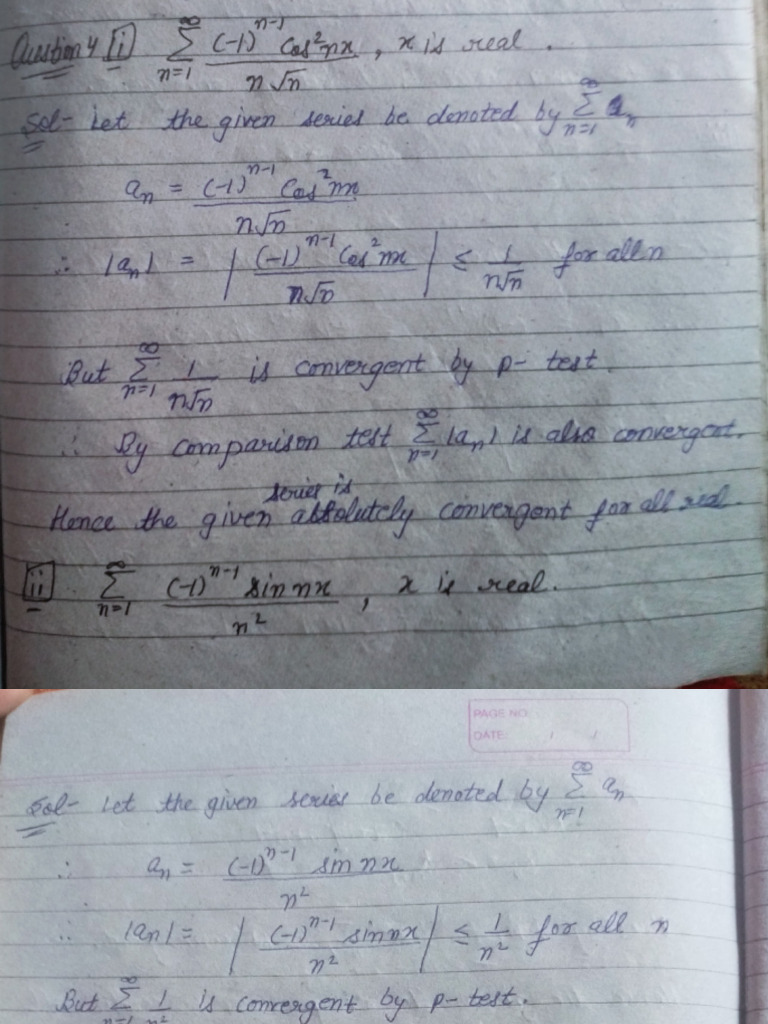 Question 4 [i] ∞∑n=1 (-1)^{n-1} Cos² nx / n√n , x is real .
Sol- Let the given series be denoted by ∞∑n=1 a_n
a_n = (-1)^{n-1} Cos² nx / n√n
∴ |a_n| = | (-1)^{n-1} Cos² nx / n√n | ≤ 1 / n√n for all n
But ∞∑n=1 1 / n√n is convergent by p- test.
∴ By comparison test ∞∑n=1 |a_n| is also convergent.
Hence the given series is absolutely convergent for all real
[ii] ∞∑n=1 (-1)^{n-1} sin nx / n² , x is real.
PAGE NO.
DATE: / /
Sol- Let the given series be denoted by ∞∑n=1 a_n
∴ a_n = (-1)^{n-1} sin nx / n²
∴ |a_n| = | (-1)^{n-1} sin nx / n² | ≤ 1 / n² for all n
But ∞∑n=1 1 / n² is convergent by p- test.